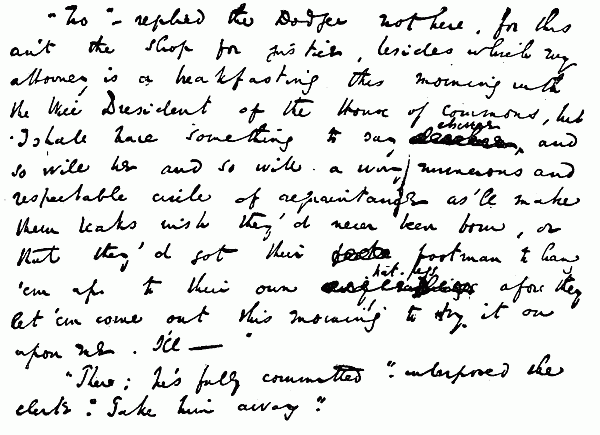 "No" – replied the Dodger not here, for this
ain't the shop for justice, besides which my
attorney is a breakfasting this morning with
the Vice President of the House of Commons, but
I shall have something to say elsewhere, and
so will he and so will a wery numerous and
respectable circle of acquaintance as'll make
them beaks wish they'd never been born, or
that they'd got their footman to hang
'em up to their own hat-pegs afore they
let 'em come out this morning to try it on
upon me. I'll — "
"There; he's fully committed" interposed the
clerk: "Take him away".